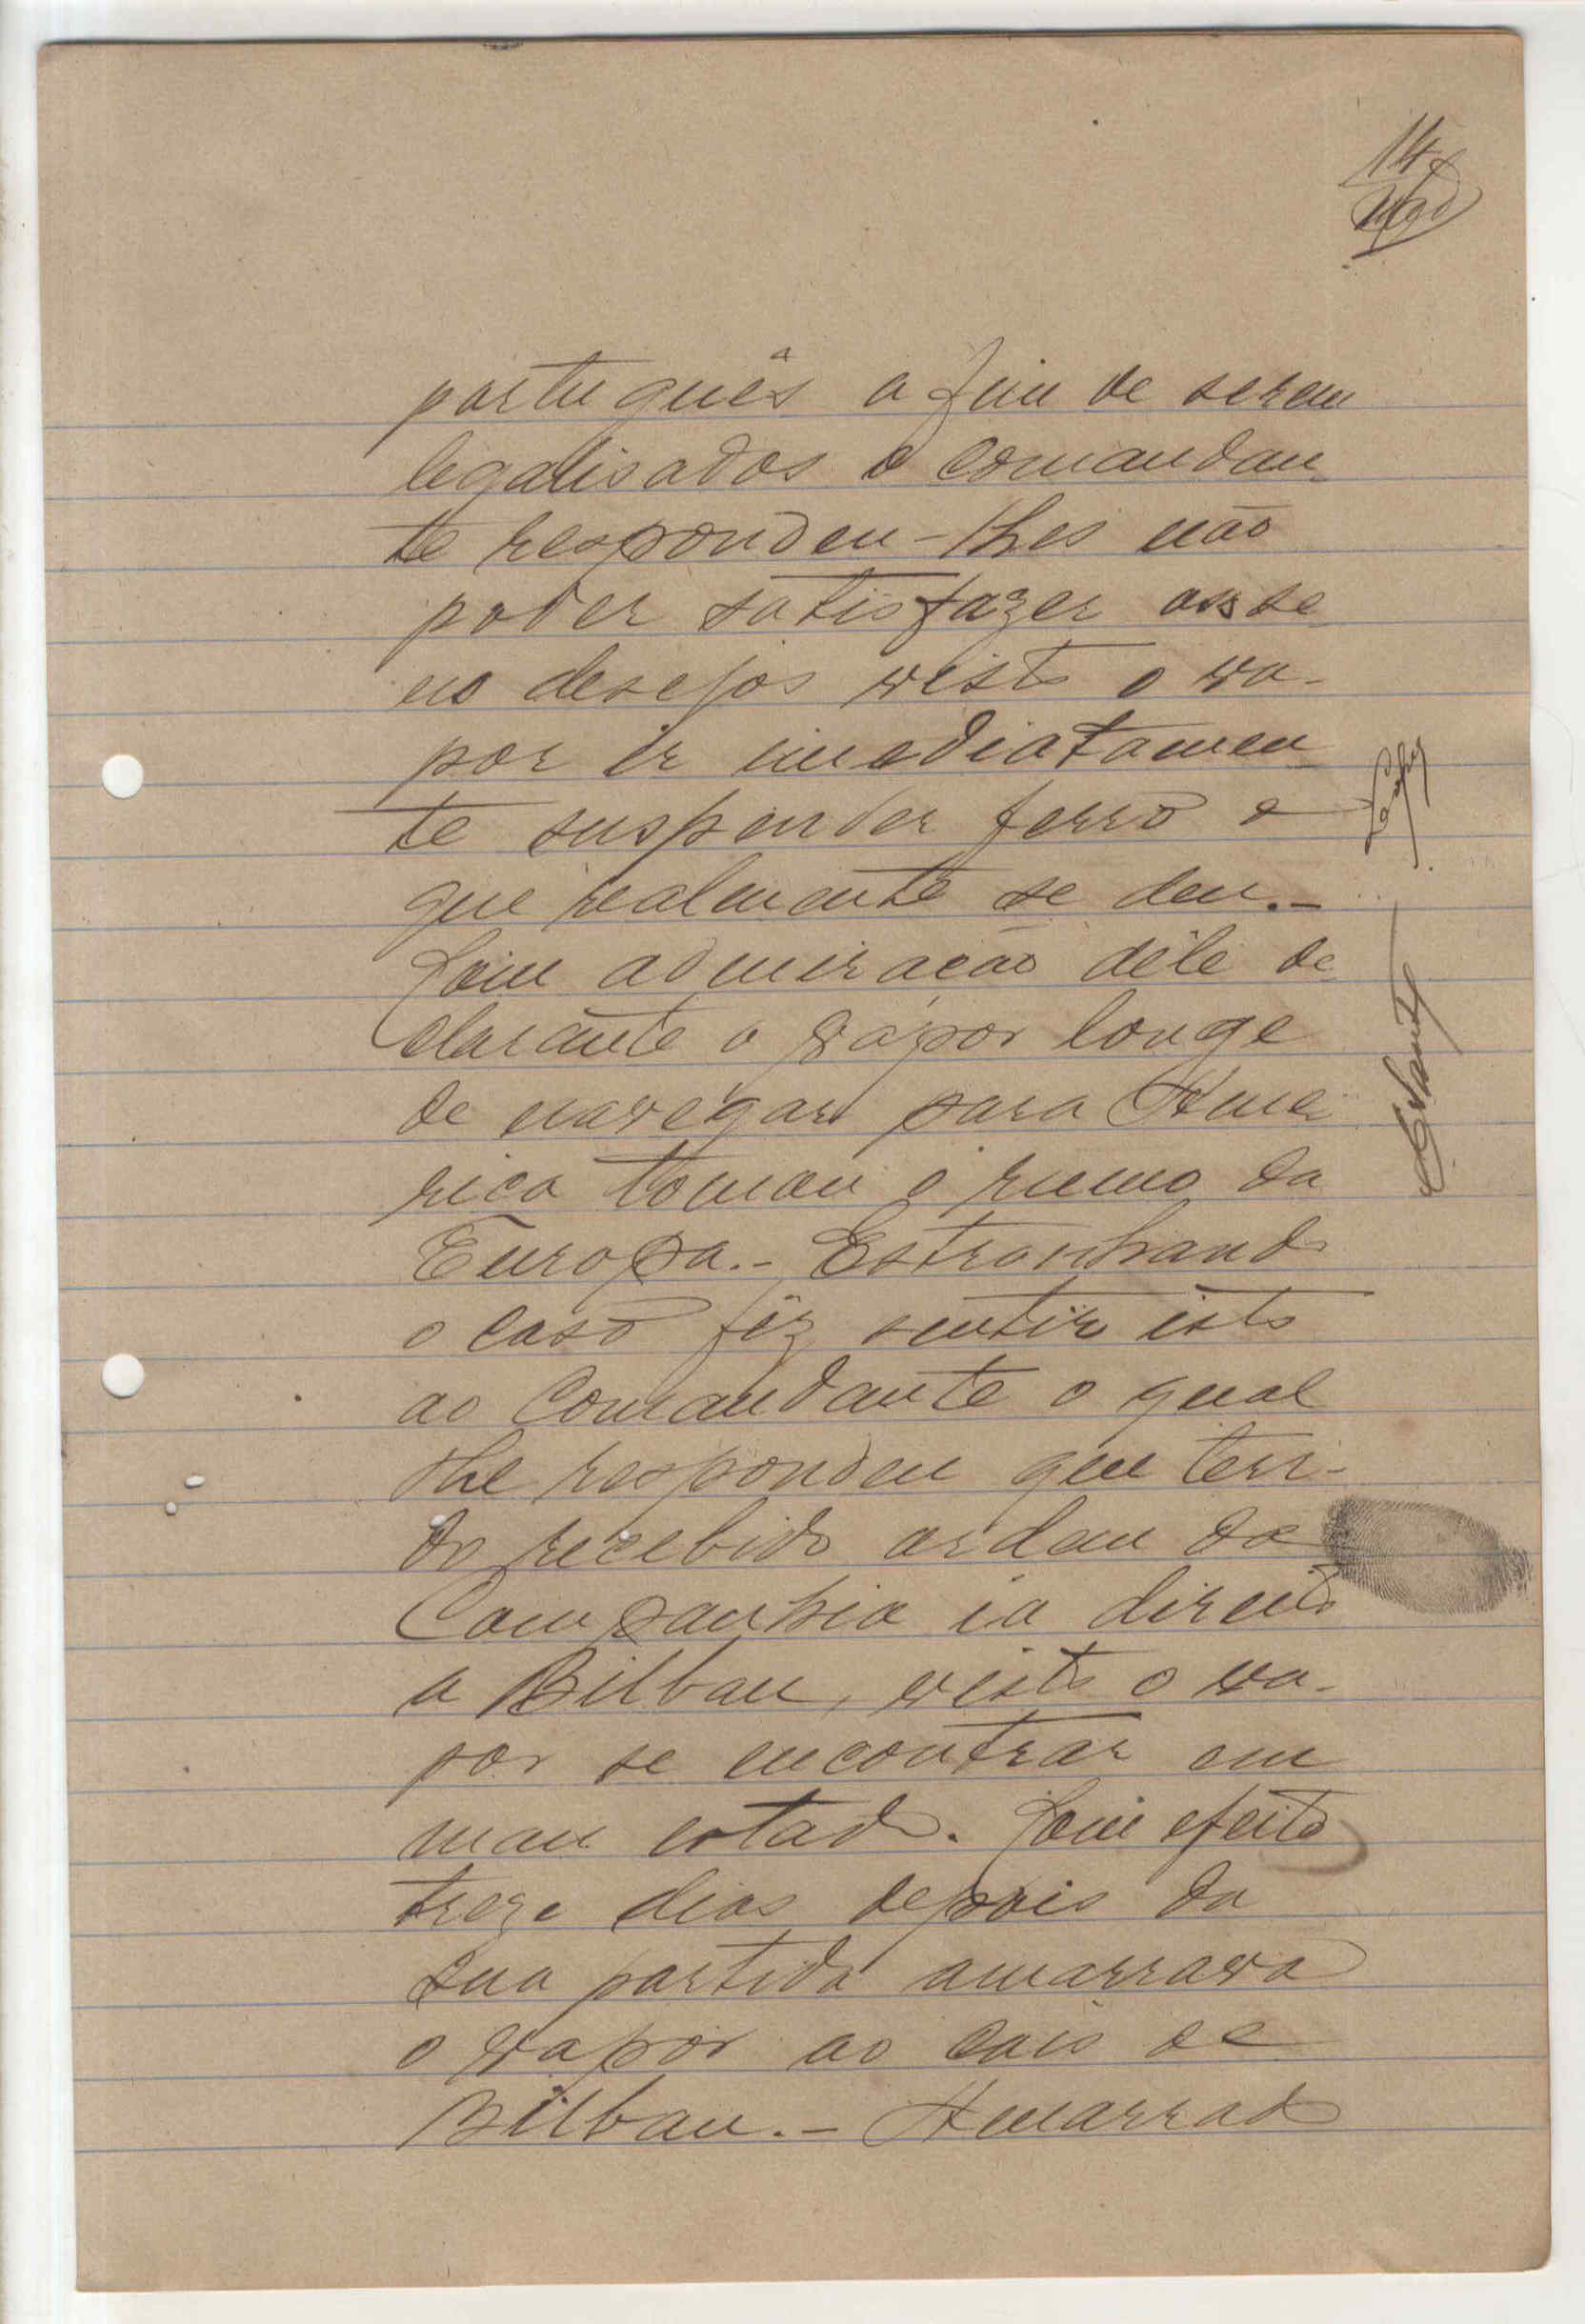 14
português a fim de serem
legalisados o comandan-
te respondeu-lhes não
poder satisfazer os se-
us desejos visto o va-
por ir imediatamen-
te suspender ferro o
que realmente se deu.-
Com admiração dêle de-
clarante o vapor longe
de navegar para Ame-
rica tomou o rumo da
Europa.- Estranhando
o caso fêz sentir isto
ao Comandante o qual
lhe respondeu que ten-
do recebido ordem da
Companhia ia direito
a Bilbau, visto o va-
por se encontrar em
mau estado. Com efeito
treze dias depois da
sua partida amarrava
o vapor ao cais de
Bilbau.- Amarrado